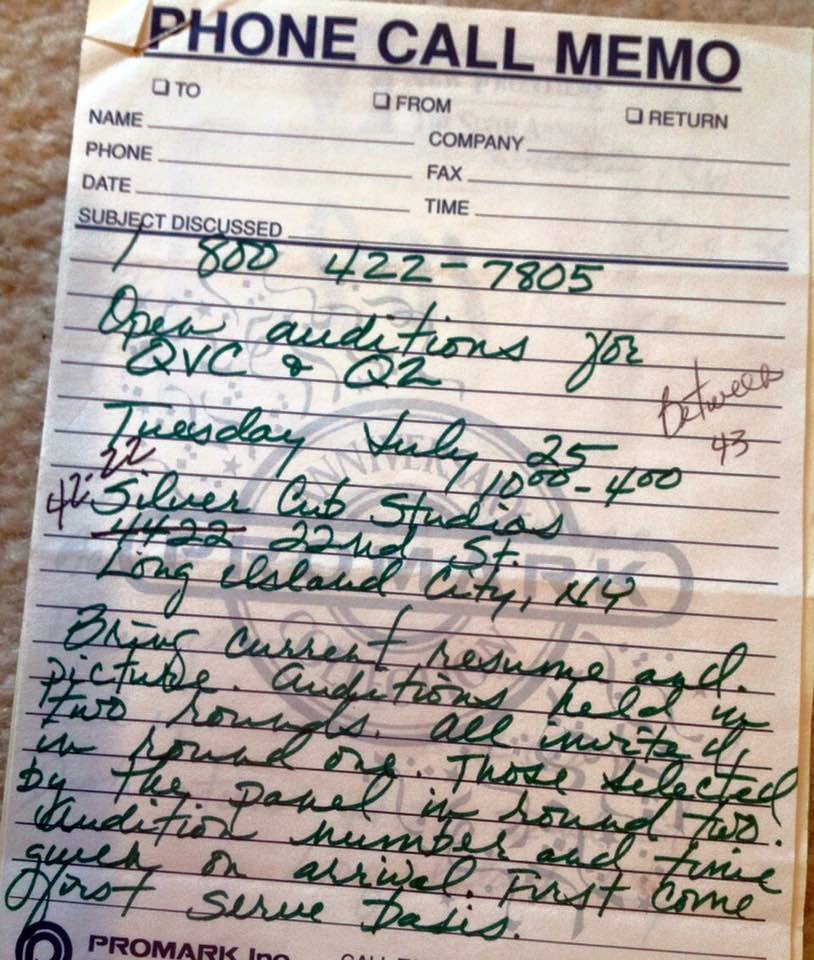 PHONE CALL MEMO
TO FROM RETURN
NAME COMPANY
PHONE FAX
DATE TIME
SUBJECT DISCUSSED
1 800 422-7805
Open auditions for
QVC & Q2
Between
43
Tuesday July 25
10 00 - 4 00
42-22
Silver Cub Studios
4422 22nd St.
Long Island City, NY
Bring current resume and
picture. Auditions held in
two rounds. All invited
in round one. Those selected
by the panel in round two.
Audition number and time
given on arrival. First come
first serve basis.
ANNIVERSARY
PROMARK
PROMARK Inc